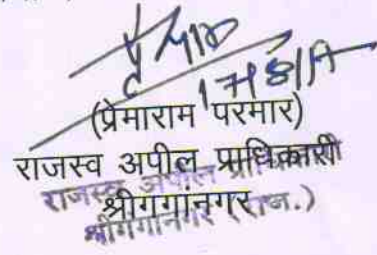 (प्रेमाराम परमार)
राजस्व अपील प्राधिकारी
श्रीगंगानगर
राजस्व अपील प्राधिकारी
श्रीगंगानगर (राज.)